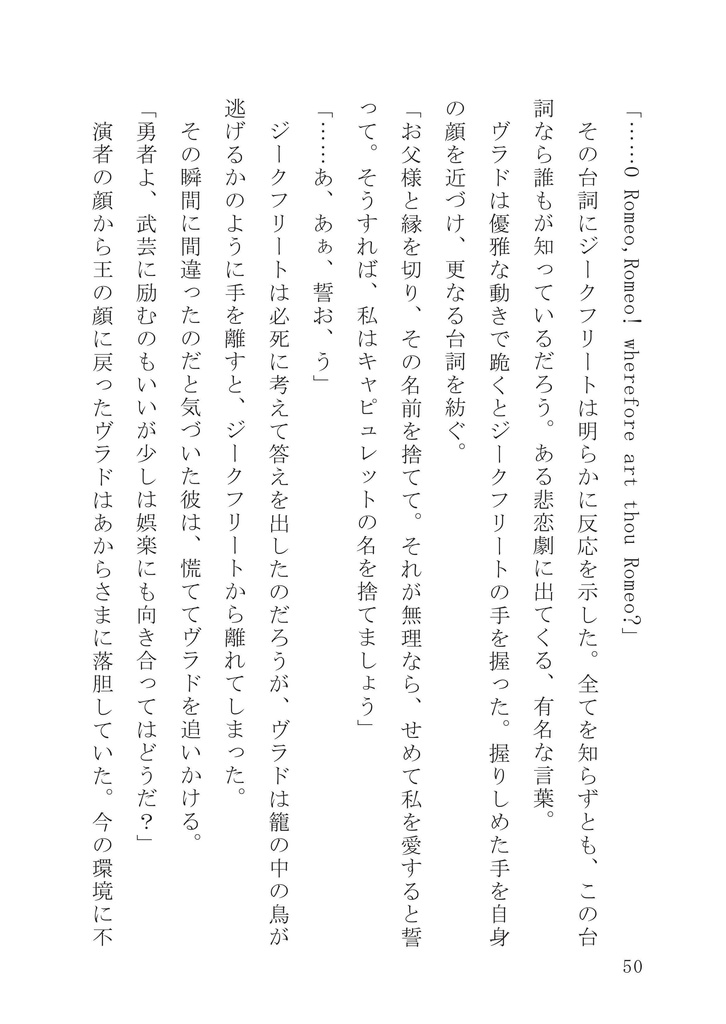 「……O Romeo,Romeo! wherefore art thou Romeo?」
　その台詞にジークフリートは明らかに反応を示した。全てを知らずとも、この台
詞なら誰もが知っているだろう。ある悲恋劇に出てくる、有名な言葉。
　ヴラドは優雅な動きで跪くとジークフリートの手を握った。握りしめた手を自身
の顔を近づけ、更なる台詞を紡ぐ。
「お父様と縁を切り、その名前を捨てて。それが無理なら、せめて私を愛すると誓
って。そうすれば、私はキャピュレットの名を捨てましょう」
「……あ、あぁ、誓お、う」
　ジークフリートは必死に考えて答えを出したのだろうが、ヴラドは籠の中の鳥が
逃げるかのように手を離すと、ジークフリートから離れてしまった。
　その瞬間に間違ったのだと気づいた彼は、慌ててヴラドを追いかける。
「勇者よ、武芸に励むのもいいが少しは娯楽にも向き合ってはどうだ？」
　演者の顔から王の顔に戻ったヴラドはあからさまに落胆していた。今の環境に不
50